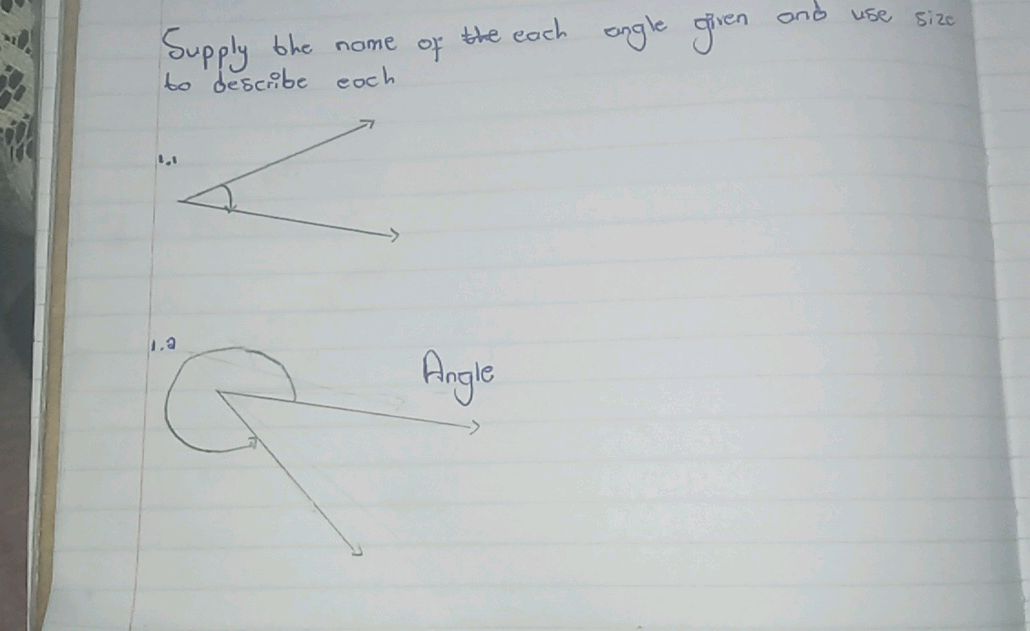 Supply the name of the each angle given and use size
to describe each
1.1
1.2
Angle